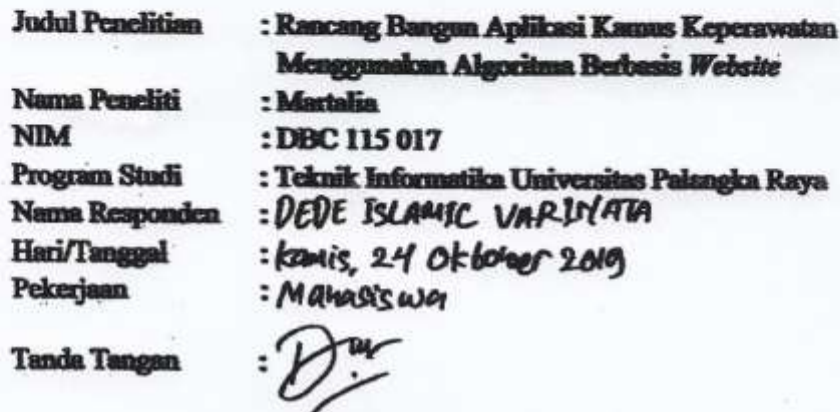 Judul Penelitian : Rancang Bangun Aplikasi Kamus Keperawatan
Menggunakan Algoritma Berbasis Website
Nama Peneliti : Martalia
NIM : DBC 115 017
Program Studi : Teknik Informatika Universitas Palangka Raya
Nama Responden : DEDE ISLAMIC
Hari/Tanggal : Kamis, 24 Oktober 2019
Pekerjaan : Mahasiswa
Tanda Tangan :